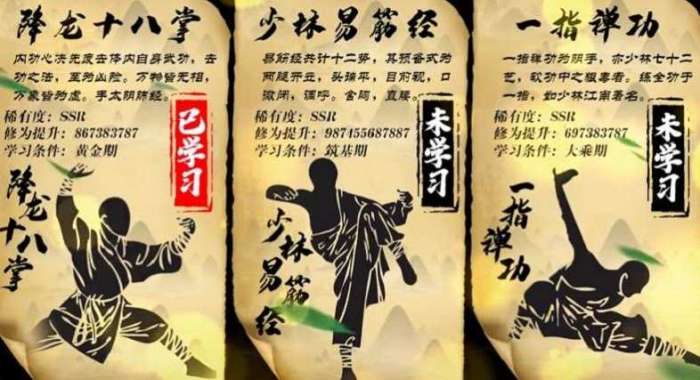 降龙十八掌
内功心决先废去体内自身武功，去
功之法，至为凶险。万物皆无相，
万象皆为虚。手太阴肺经。
稀有度：SSR
修为提升：867383787
学习条件：黄金期
已学习
降龙十八掌
少林易筋经
易筋经共计十二势，其预备式为
两腿开立，头端平，目前视，口
微闭，调呼。含胸，直腰。
稀有度：SSR
修为提升：987455687887
学习条件：筑基期
未学习
少林易筋经
一指禅功
一指禅功为阴手，亦少林七十二
艺，软功中之极毒者。练全功于
一指，如少林江南著名。
稀有度：SSR
修为提升：697383787
学习条件：大乘期
未学习
一指禅功